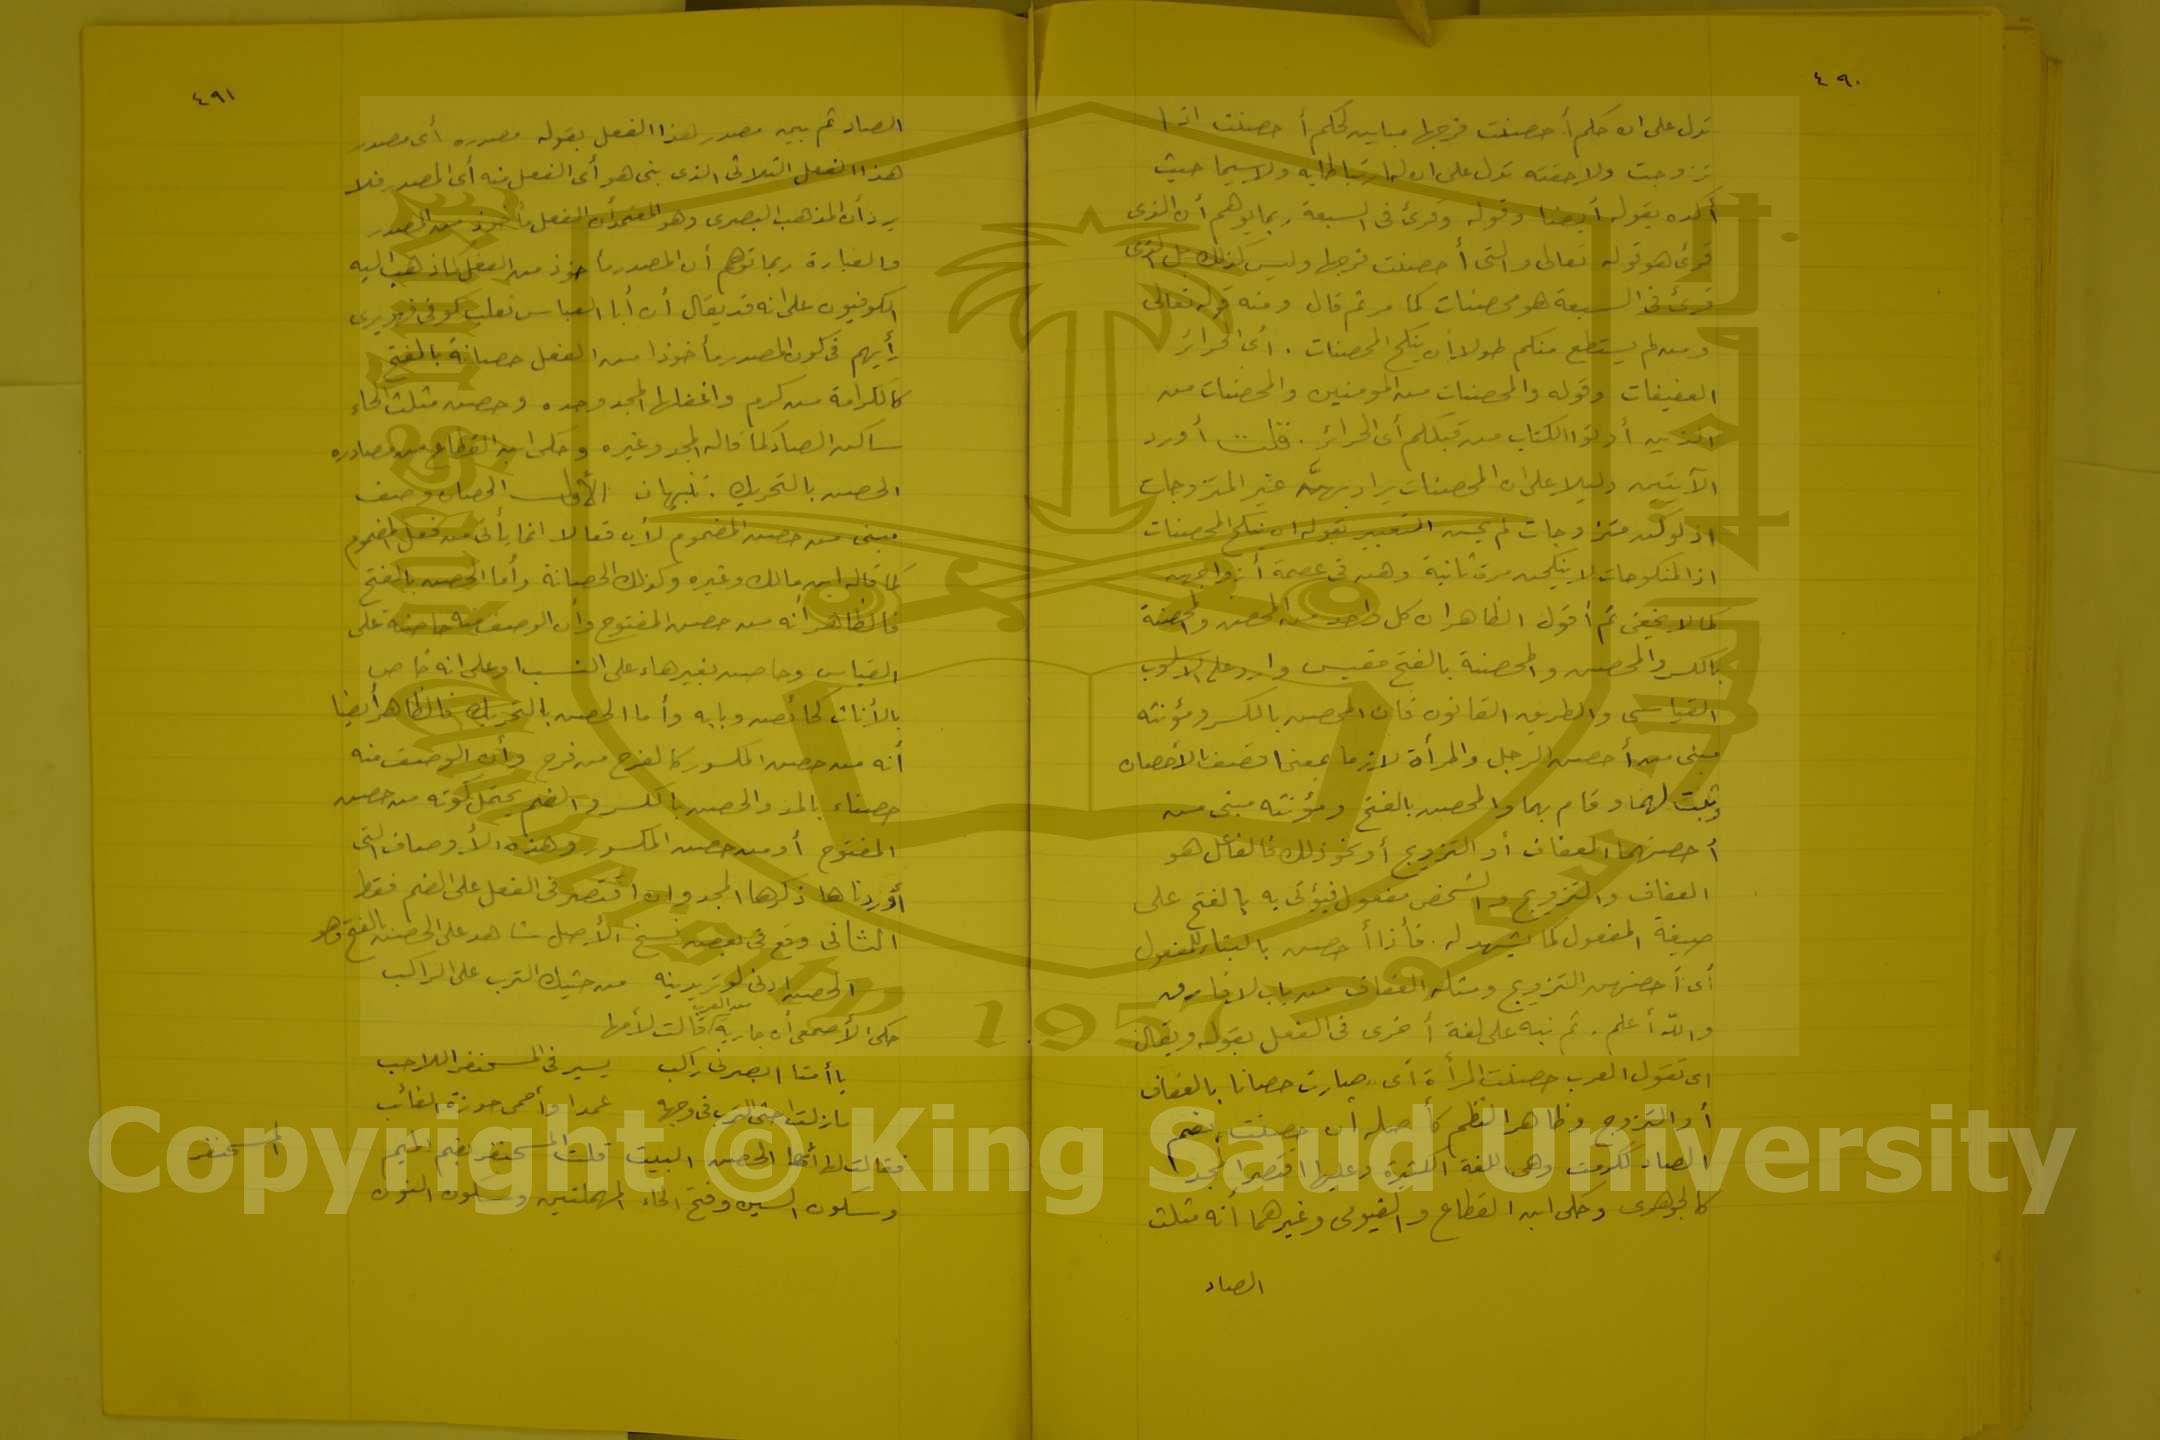 ٤٩٠
تدل على ان حكم أحصنت فرجها مباين لحكم أحصنت اذا
تزوجت ولاحقته تدل على ان لها ارتباطا به ولا سيما حيث
أكده بقوله أيضا وقوله وقرئ فى السبعة ربما يوهم أن الذى
قرئ هو قوله تعالى والتى أحصنت فرجها وليس كذلك بل الذى
قرئ فى السبعة هو محصنات كما مر ثم قال ومنه قوله تعالى
ومن لم يستطع منكم طولا أن ينكح المحصنات . أى الحرائر
العفيفات وقوله والمحصنات من المومنين والمحصنات من
الذين أوتوا الكتاب من قبلكم أى الحرائر . قلت أورد
الآيتين دليلا على ان المحصنات يراد بهنّ غير المتزوجات
اذ لو كن متزوجات لم يحسن التعبير بقوله ان ينكح المحصنات
اذ المنكوحات لا ينكحن مرة ثانية وهن فى عصمة أزواجهن
كما لا يخفى ثم أقول الظاهر ان كل واحد من المحصن والمحصنة
بالكسر والمحصن والمحصنة بالفتح مقيس وارد على الاسلوب
القياسى والطريق القانون فان المحصن بالكسر ومؤنثه
مبنى من أحصن الرجل والمرأة لازما بمعنى اتصف بالأحصان
وثبت لهما وقام بهما والمحصن بالفتح ومؤنثه مبنى من
أحصنهما العفاف أو التزويج أو نحو ذلك فالفاعل هو
العفاف والتزويج والشخص مفعول فيؤتى به بالفتح على
صيغة المفعول كما يشهد له . فأذا أحصن بالبناء للمفعول
أى أحصنهن التزويج ومثله العفاف من باب لا فارق
والله أعلم . ثم نبه على لغة أخرى فى الفعل بقوله ويقال
اى تقول العرب حصنت المرأة أى صارت حصانا بالعفاف
أو التزوج وظاهر النظم كأصله أن حصنت بضم
الصاد ككرمت وهى اللغة الكثيرة وعليها اقتصر المجد
كالجوهرى وحكى ابن القطاع والفيومى وغيرهما أنه مثلث
الصاد
٤٩١
الصاد ثم بين مصدر هذا الفعل بقوله مصدره أى مصدر
هذا الفعل الثلاثى الذى بنى هو أى الفعل منه أى المصدر فلا
يرد أن المذهب البصرى وهو المعتمد أن الفعل مأخوذ من المصدر
والعبارة ربما توهم أن المصدر مأخوذ من الفعل كما ذهب اليه
الكوفيون على انه قد يقال أن أبا العباس ثعلب كوفى فهو يرى
رأيهم فى كون المصدر مأخوذا من الفعل حصانة بالفتح
كالكرامة من كرم واغفلها المجد وحده وحصن مثلث الحاء
ساكن الصاد كما قاله المجد وغيره وحكى ابن القطاع من مصادره
الحصن بالتحريك . تنبيهان الأول الحصان وصف
مبنى من حصن المضموم لأن فعالا انما يأتى من فعل المضموم
كما قاله ابن مالك وغيره وكذلك الحصانة وأما الحصن بالفتح
فالظاهر أنه من حصن المفتوح وأن الوصف منه حاصنة على
القياس وحاصن بغير هاء على النسب او على انه خاص
بالأناث كحائض وبابه وأما الحصن بالتحريك فالظاهر أيضا
أنه من حصن المكسور كالفرح من فرح وأن الوصف منه
حصناء بالمد والحصن بالكسر والضم يحتمل كونه من حصن
المفتوح أو من حصن المكسور وهذه الأوصاف التى
أوردناها ذكرها المجد وان اقتصر فى الفعل على الضم فقط
الثانى وقع فى بعض نسخ الأصل شاهد على الحصن بالفتح وهو
الحصن ادنى لو تريدينه من حثيك الترب على الراكب
حكى الأصمعى أن جارية من العرب قالت لأمها
يا أمتا ابصرنى راكب يسير فى المسحنفر اللاحب
ما زلت احثى الترب فى وجهه عمدا وأحمى حوزة الغائب
فقالت لها أمها الحصن البيت قلت المسحنفر بضم الميم
وسكون السين وفتح الحاء المهملتين وسكون النون
المسحنفر
Copyright © King Saud University
1957